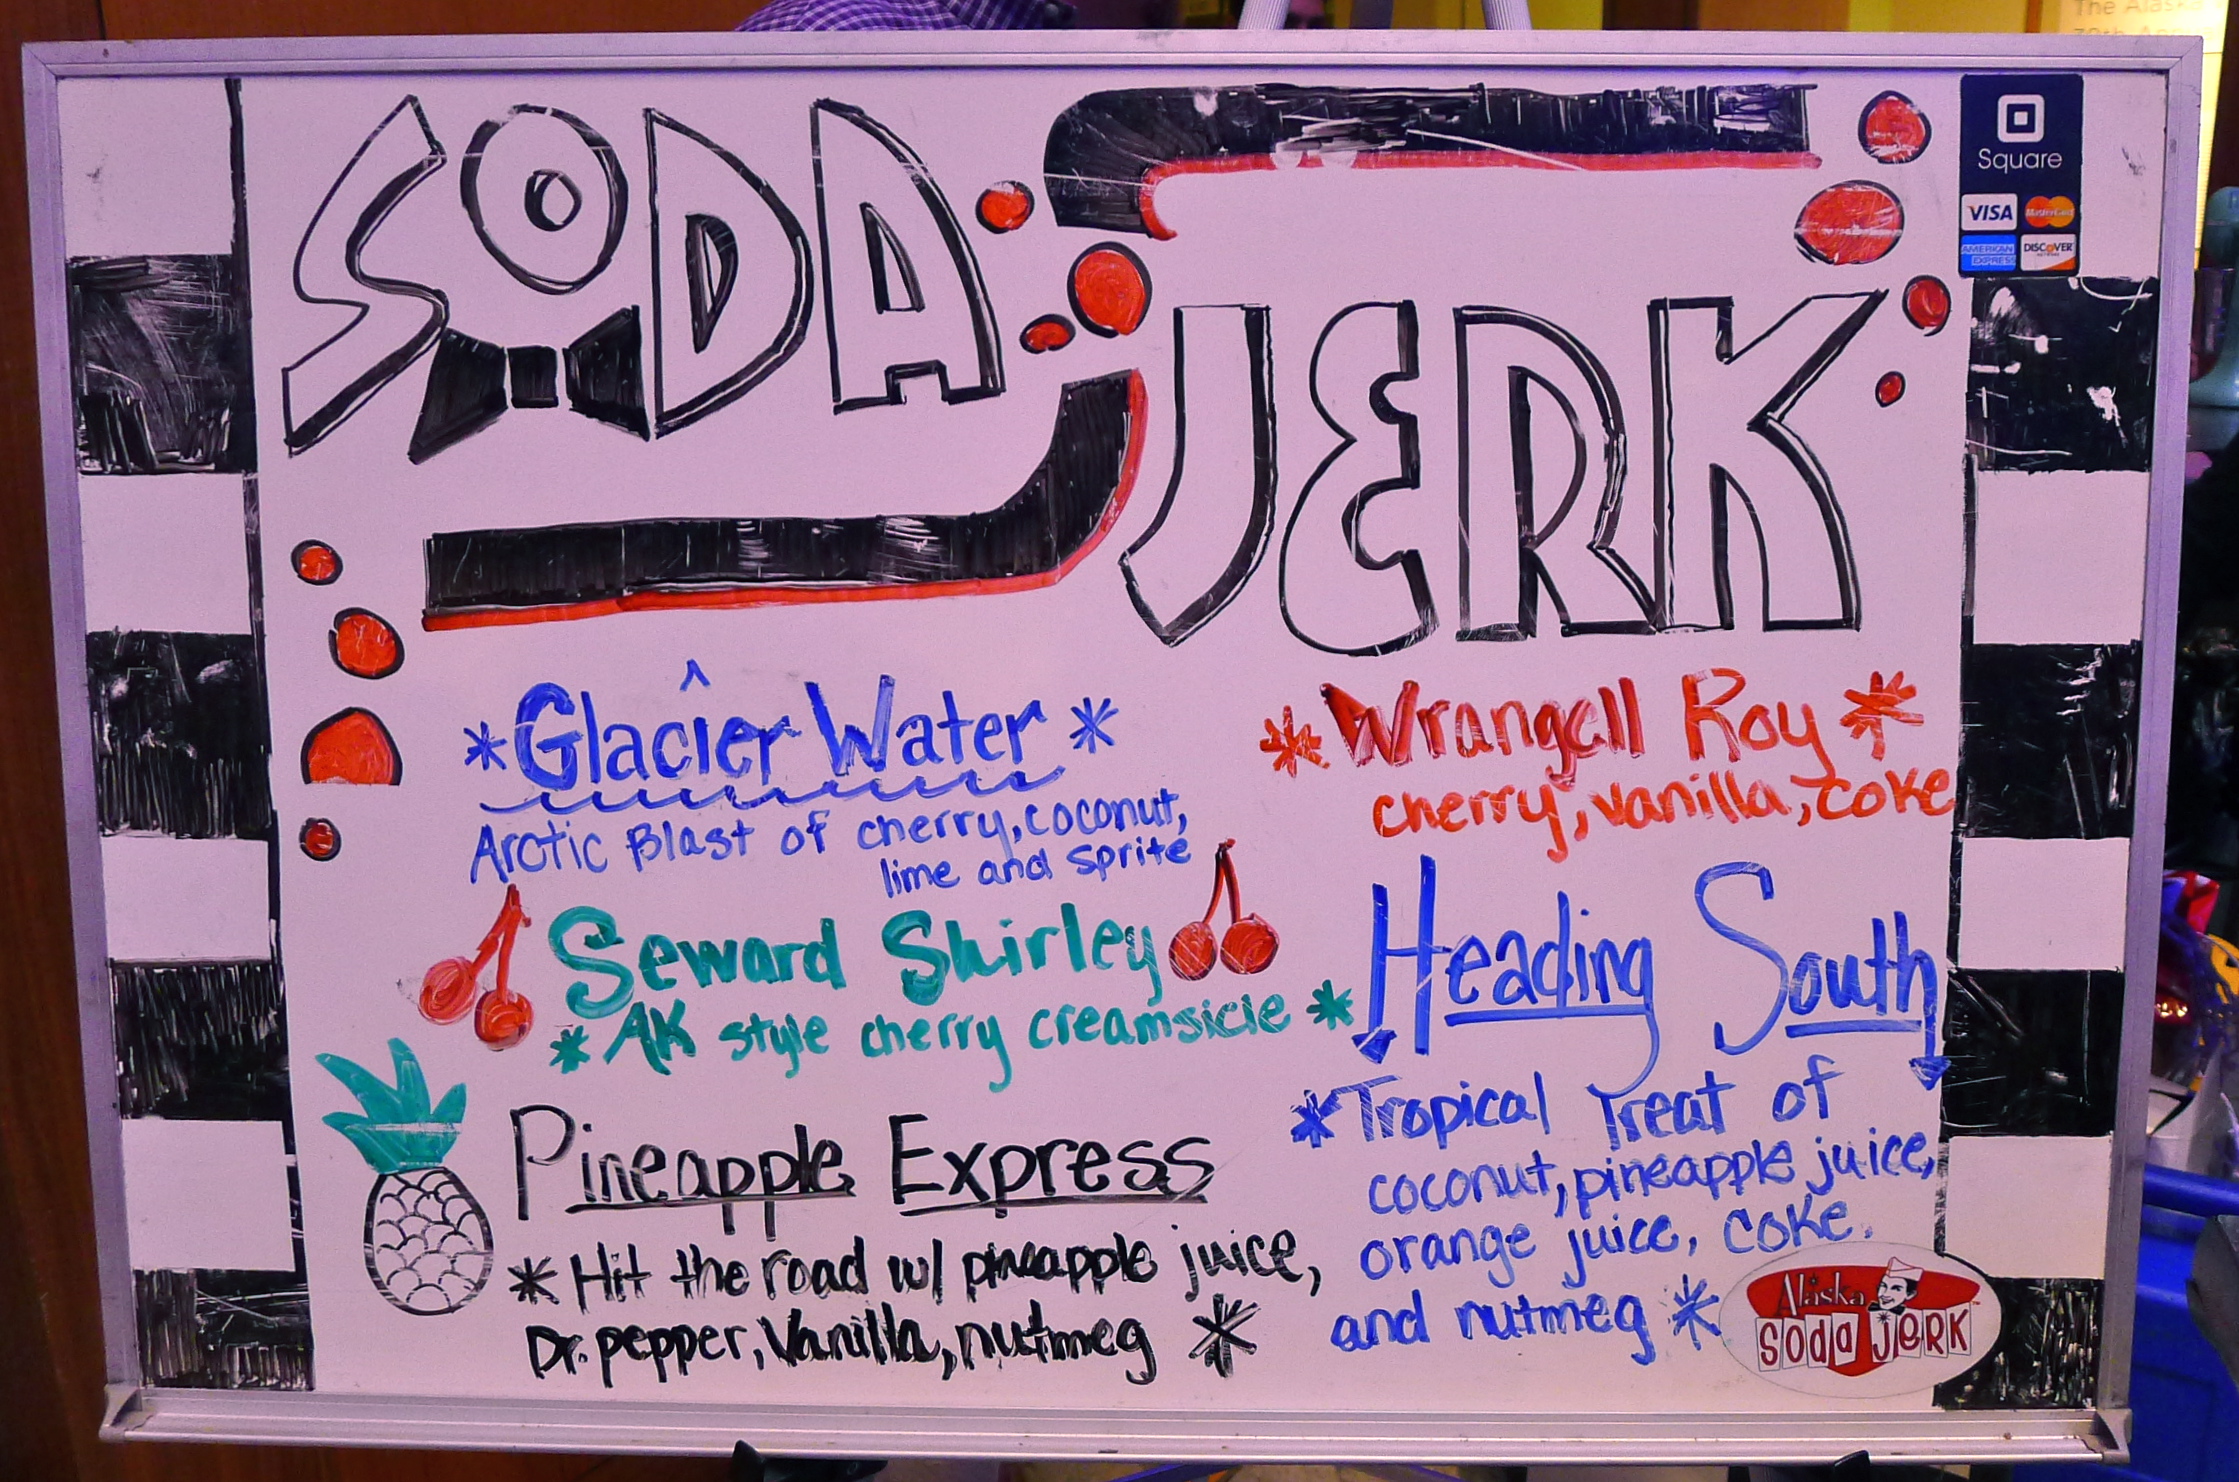 The Alaska
SODA
JERK
Square
VISA
MasterCard
AMERICAN EXPRESS
DISCOVER
NETWORK
*Glacier Water*
Arctic Blast of cherry, coconut,
lime and sprite
Seward Shirley
*AK style cherry creamsicle*
Pineapple Express
*Hit the road w/ pineapple juice,
Dr. pepper, Vanilla, nutmeg *
*Wrangell Roy*
cherry, vanilla, coke
Heading South
*Tropical Treat of
coconut, pineapple juice,
orange juice, coke,
and nutmeg *
Alaska
SODA JERK